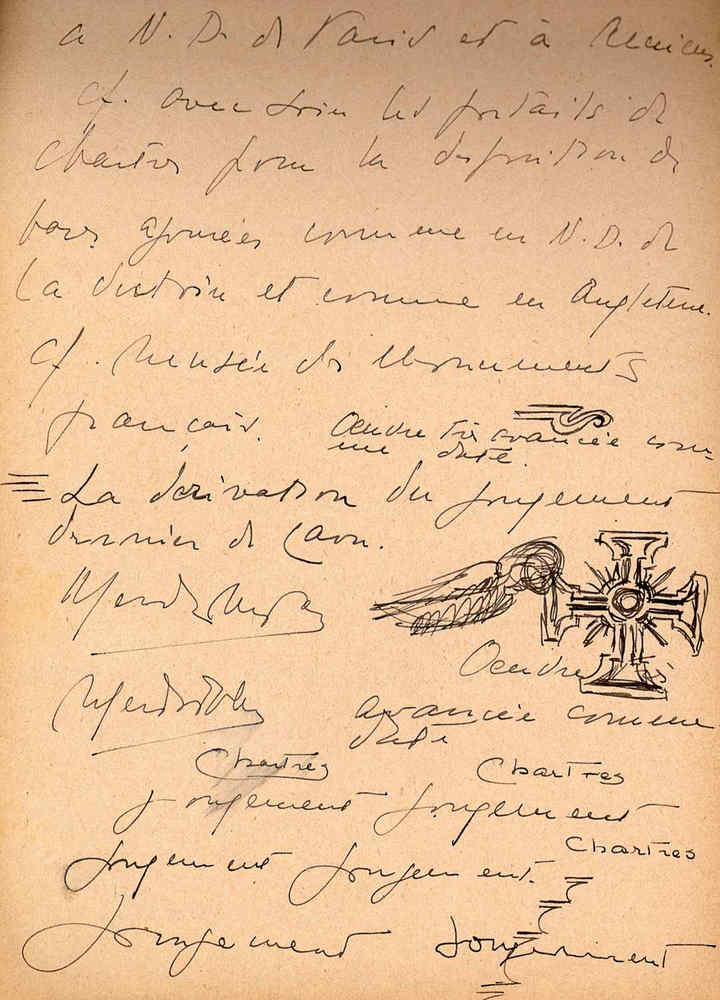 a N. D. de Paris et à Reims.
cf. avec soin les portails de
Chartres pour la disposition des
bases ajourées comme en N. D. de
la et comme en Angleterre.
cf. Musée des Monuments
français. Oeuvre très avancée com-
me date.
La dérivation du jougement
dernier de Laon.
Oeuvre
avancée comme
date
Chartres Chartres
jougement jougement
Chartres
jougement jougement.
Jougement Jougement